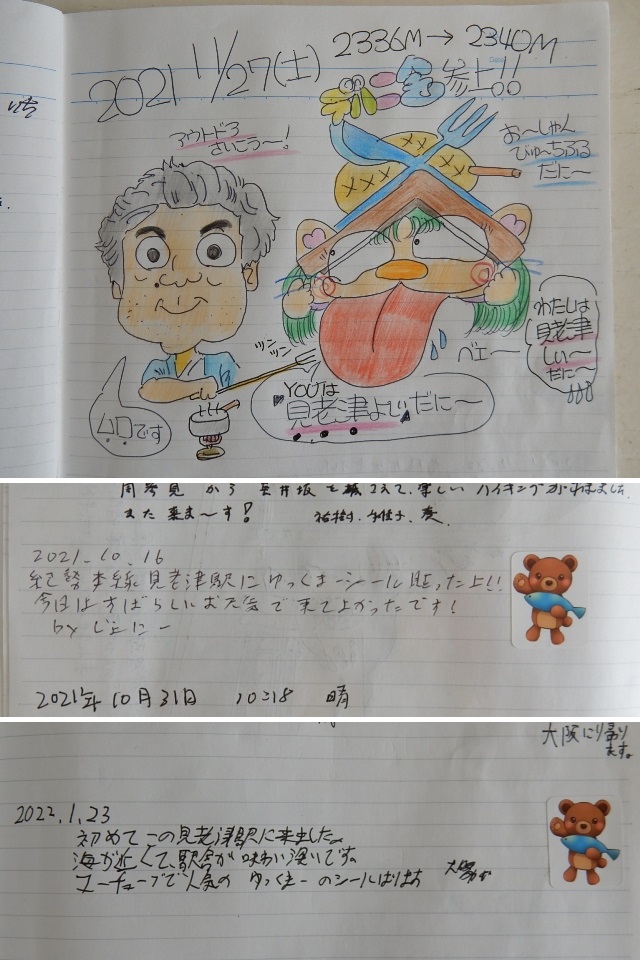 2021 11/27(土) 2336M→2340M
参上!!
アウトドア
さいこう〜!
お〜しゃん
びゅーちふる
だに〜
わたしは
見老津
しい〜
だに〜
ツン
ツン
ベェ〜
YOUは
見老津よいだに〜
ムロです
周参見 から 長井坂 を 越えて、楽しい ハイキングが
また 来ま〜す!
2021.10.16
紀勢本線見老津駅にゆっくまーシール貼った上!!
今日はすばらしいお天気で来てよかったです!
by じぇにー
2021年10月31日 10:18 晴
大阪に帰り
ます。
2022.1.23
初めてこの見老津駅に来ました。
海が近くて、駅舎が味わい深いです。
ユーチューブで人気の ゆっくまーのシールはります